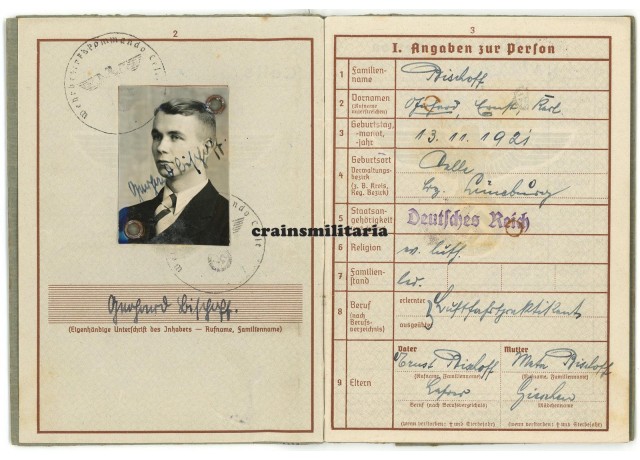 2
Wehrbezirkskommando Celle
Gerhard Bischoff.
crainsmilitaria
Gerhard Bischoff.
(Eigenhändige Unterschrift des Inhabers — Rufname, Familienname)
3
I. Angaben zur Person
1 Familien-
name
Bischoff
2 Vornamen
(Rufname
unterstreichen)
Gerhard, Ernst, Karl
3 Geburtstag,
-monat,
-jahr
13. 11. 1921
4 Geburtsort
Verwaltungs-
bezirk
(z. B. Kreis,
Reg. Bezirk)
Celle
Lüneburg
5 Staatsan-
gehörigkeit
Deutsches Reich
6 Religion
ev. luth.
7 Familien-
stand
led.
8 Beruf
(nach
Berufs-
verzeichnis)
erlernter
ausgeübter
Luftfahrtpraktikant
9 Eltern
Vater
Mutter
Ernst Bischoff
Meta Bischoff
(Rufname, Familienname)
(Rufname, Familienname)
Beruf (nach Berufsverzeichnis)
Mädchenname
(wenn verstorben: † und Sterbejahr)
(wenn verstorben: † und Sterbejahr)